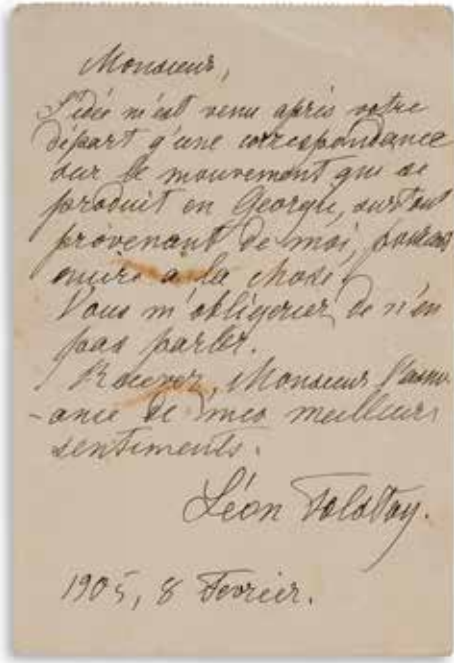 Monsieur,
L'idée m'est venu après votre
départ q'une correspondance
sur le mouvement qui se
produit en Georgie, surtout
provenant de moi, pourrait
nuire à la chose.
Vous m'obligerier, de n'en
pas parler.
Recevez, Monsieur l'assur-
-ance de mes meilleurs
sentiments.
Léon Tolstoy.
1905, 8 Fevrier.